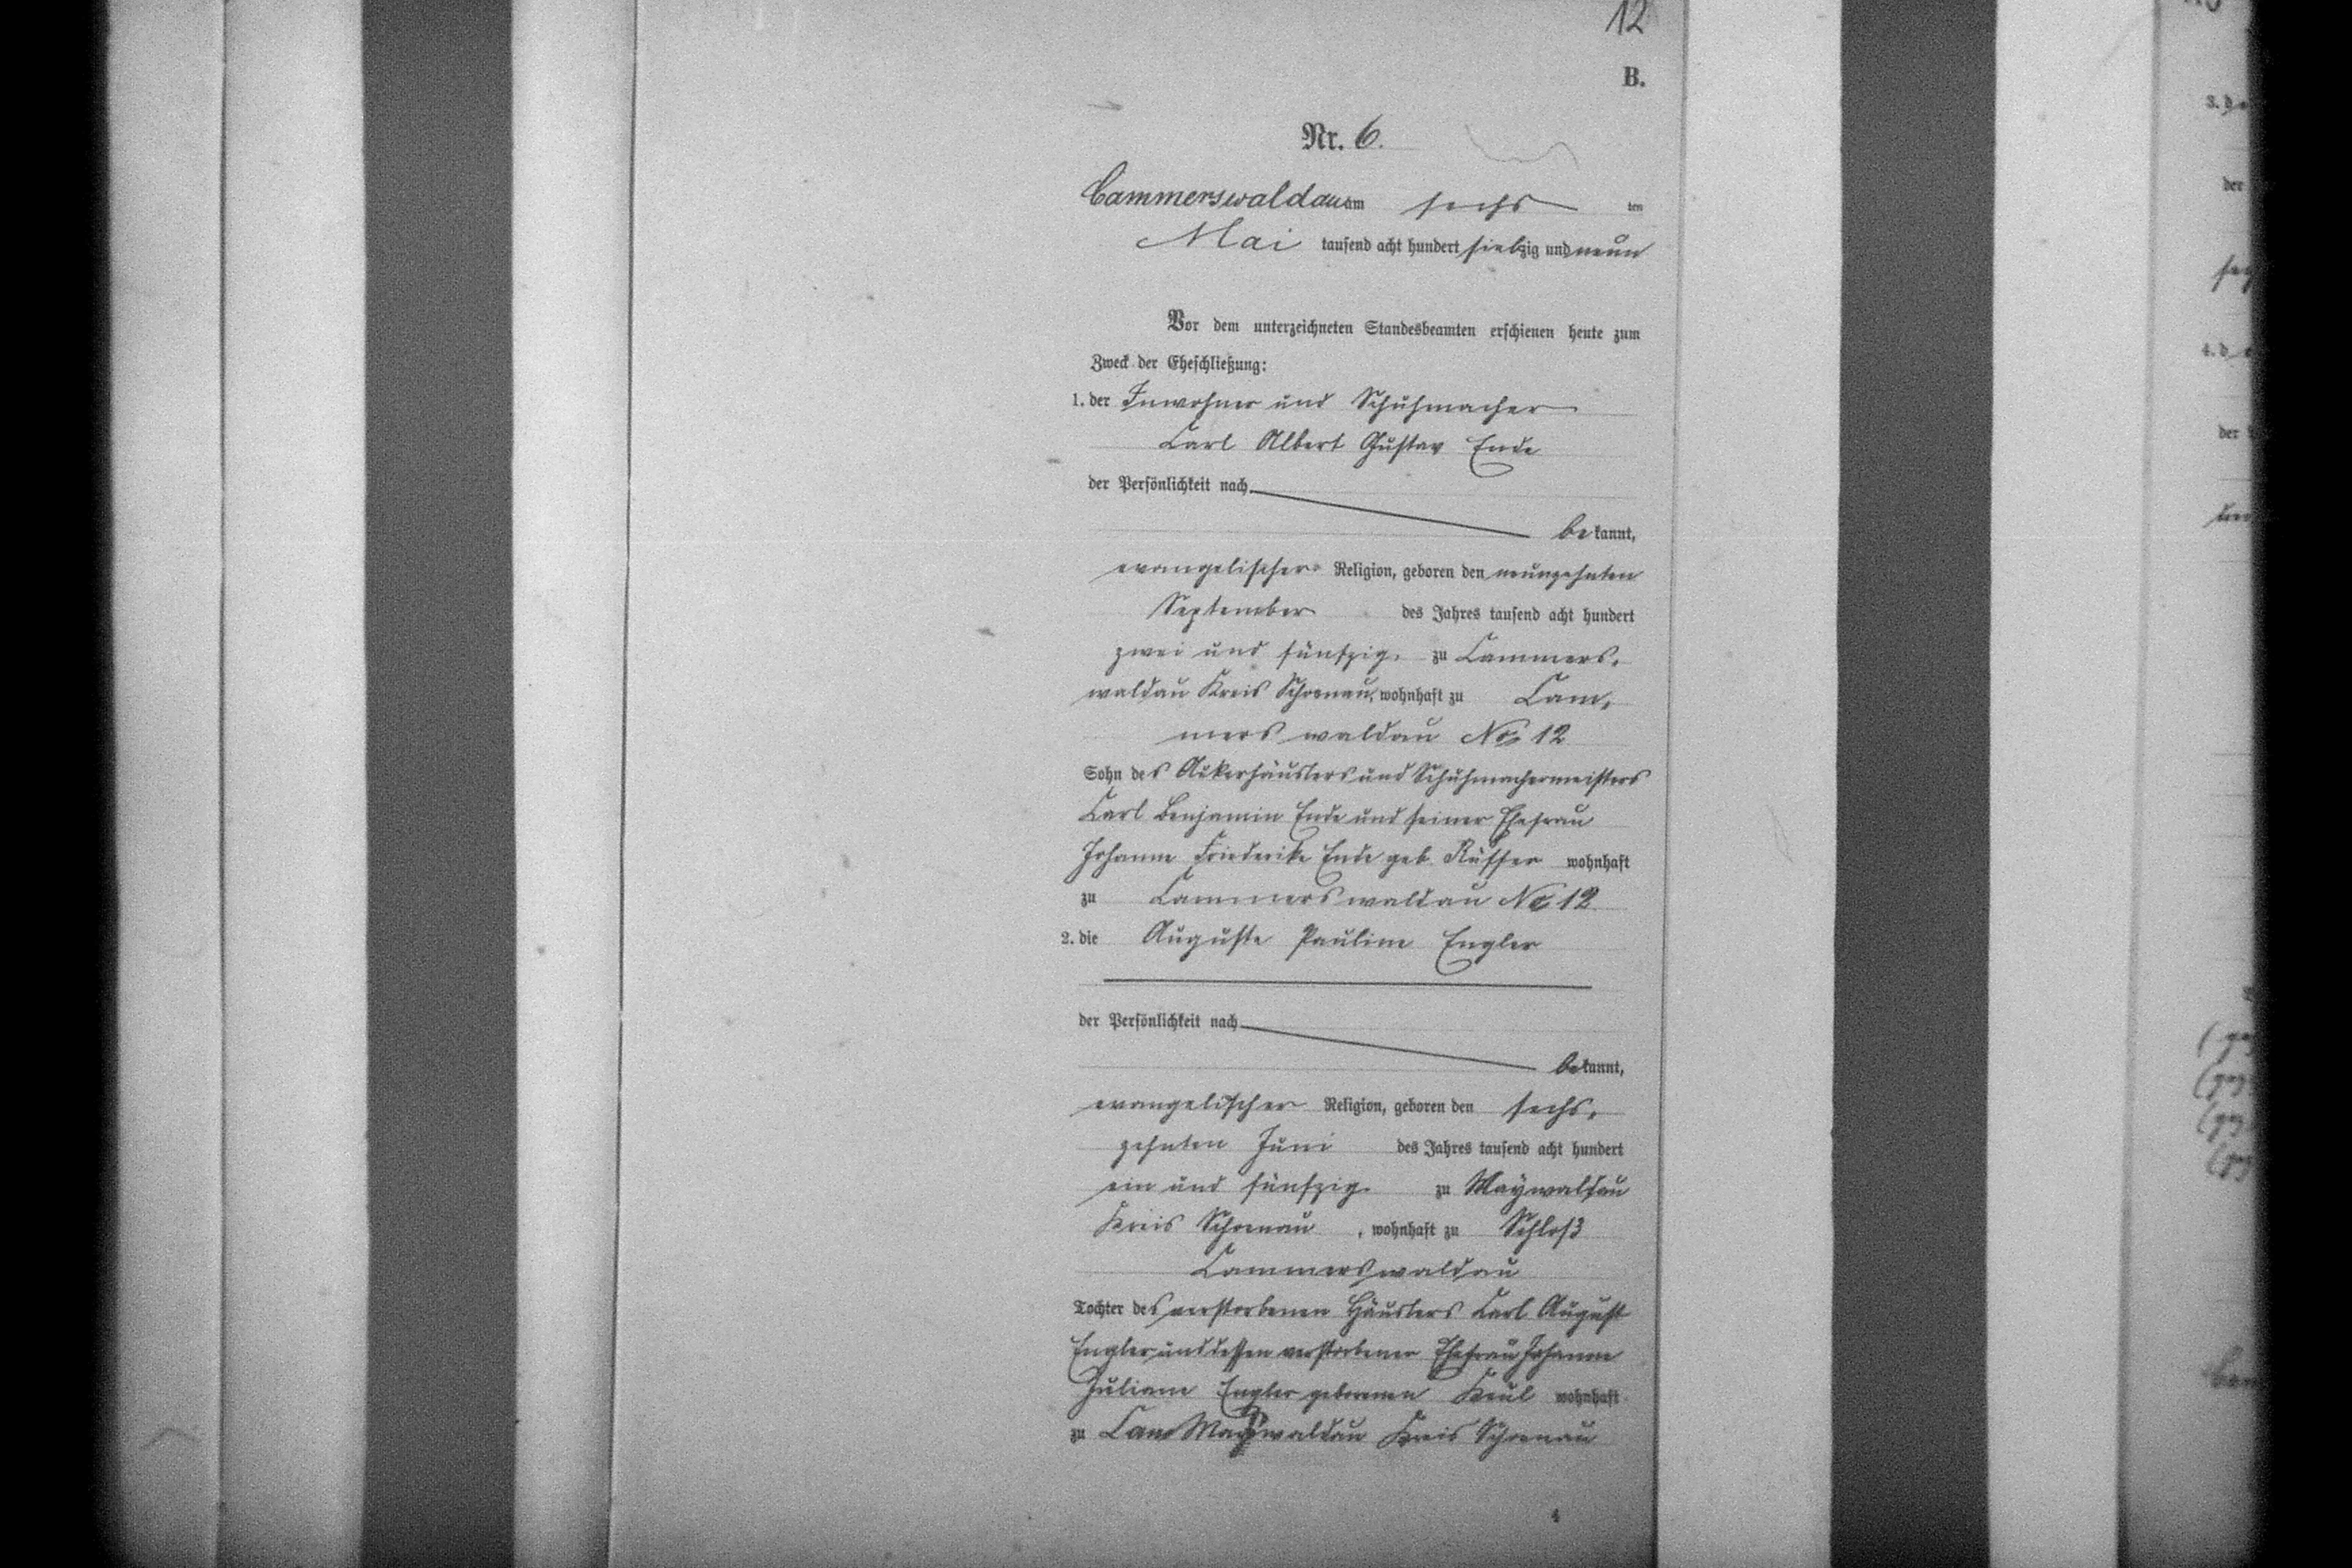 12
B.
Nr. 6.
Cammerswaldau am sechs ten
Mai tausend acht hundert siebzig und neun
Vor dem unterzeichneten Standesbeamten erschienen heute zum
Zweck der Eheschließung:
1. der Inwohner und Schuhmacher
Carl Albert Gustav Ende
der Persönlichkeit nach
bekannt,
evangelischer Religion, geboren den neunzehnten
September des Jahres tausend acht hundert
zwei und fünfzig. zu Cammers,
waldau Kreis Schoenau, wohnhaft zu Cam,
mers waldau No 12
Sohn des Ackerhäuslers und Schuhmachermeisters
Carl Benjamin Ende und seiner Ehefrau
Johanne Friederike Ende geb. Rüffer wohnhaft
zu Cammerswaldau No 12
2. die Auguste Pauline Engler
der Persönlichkeit nach
bekannt,
evangelischer Religion, geboren den sechs,
zehnten Juni des Jahres tausend acht hundert
ein und fünfzig. zu Maywaldau
Kreis Schoenau, wohnhaft zu Schloß
Cammerswaldau
Tochter des verstorbenen Häuslers Carl August
Engler und dessen verstorbener Ehefrau Johanne
Juliane Engler geborenen Keul wohnhaft
zu Cam Maywaldau Kreis Schoenau
4